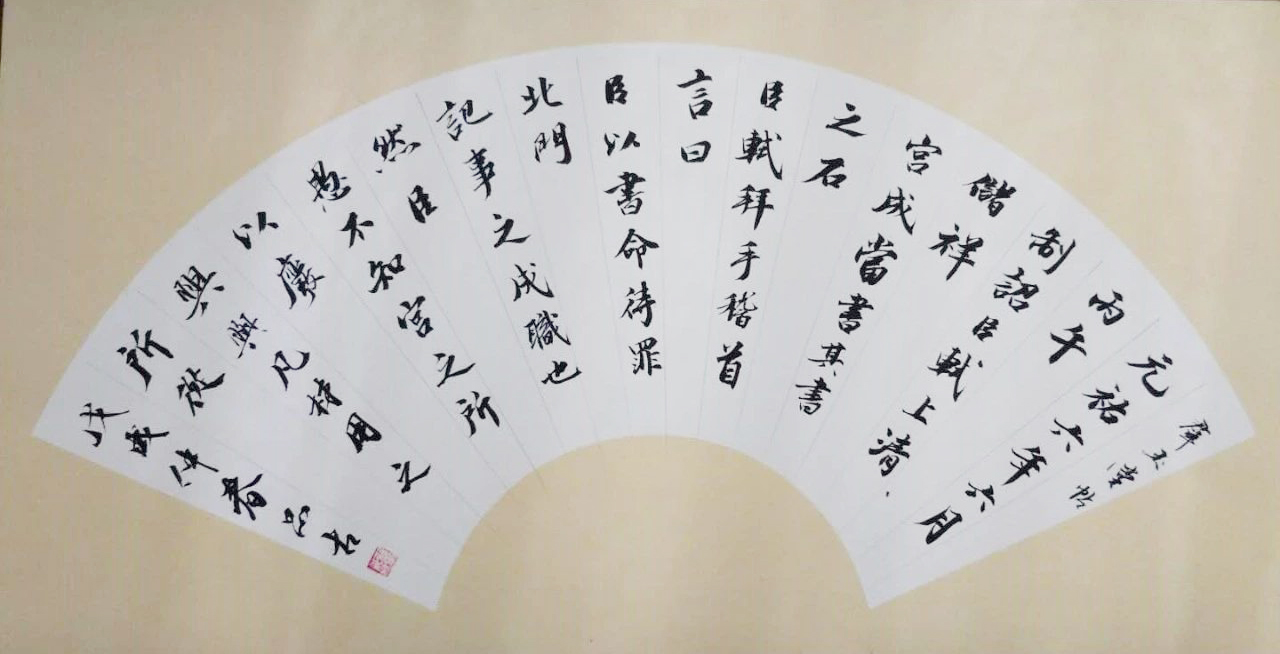 群玉堂帖
元祐六年六月
丙午
制詔臣軾上清
儲祥
宮成當書其書
之石
臣軾拜手稽首
言曰
臣以書命待罪
北門
記事之成職也
然臣
愚不知宮之所
以廢
興與凡材用之
所從
戊戌仲春